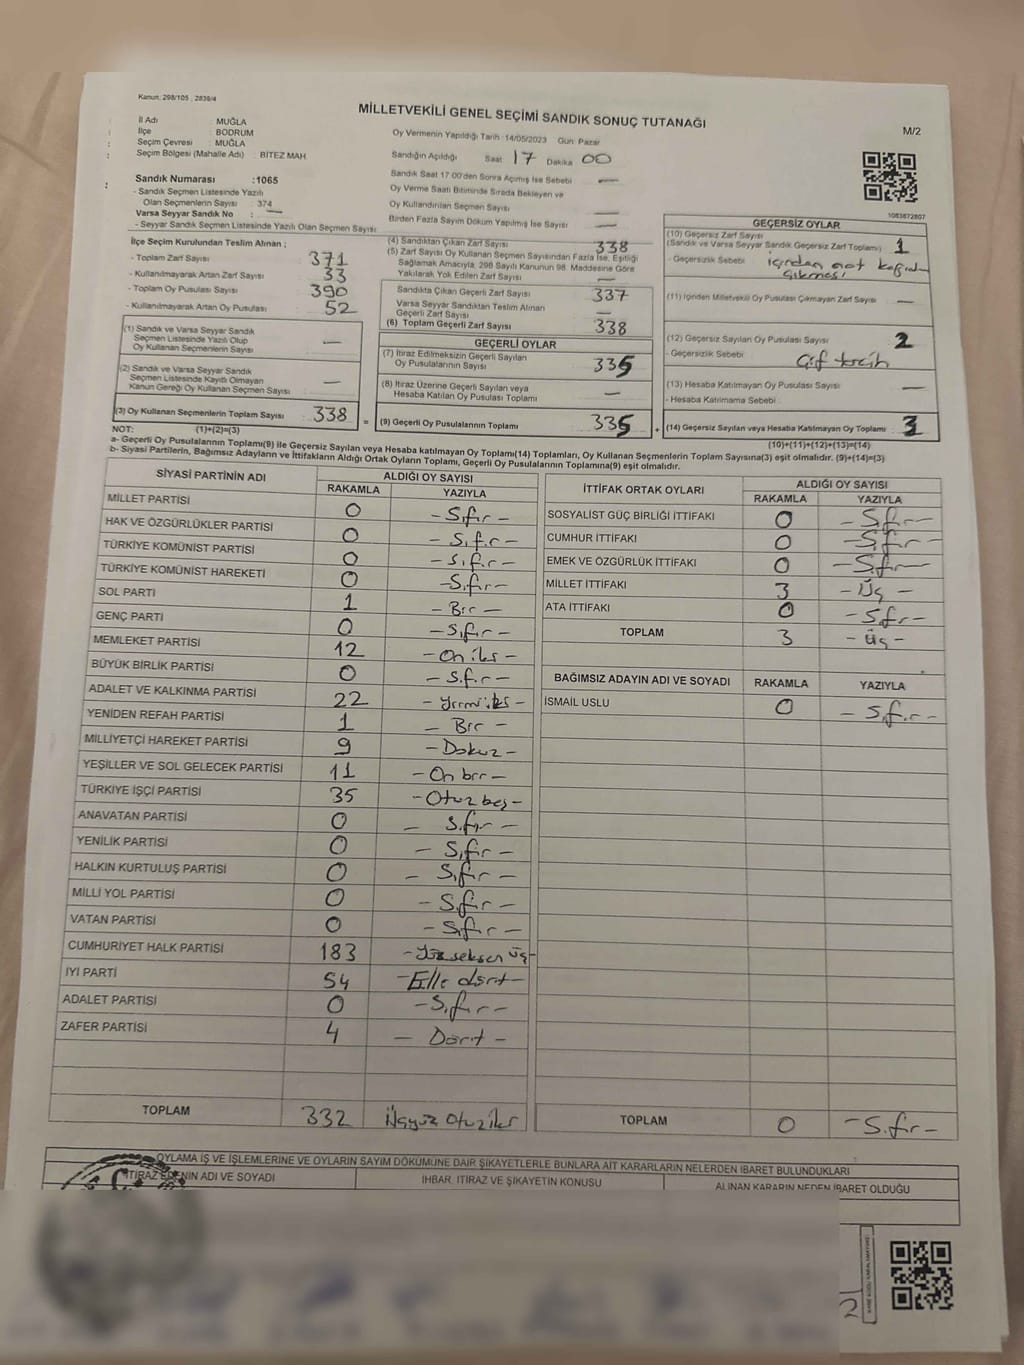 Kanun, 298/105 , 2839/4
MİLLETVEKİLİ GENEL SEÇİMİ SANDIK SONUÇ TUTANAĞI
M/2
İl Adı : MUĞLA
İlçe : BODRUM
Seçim Çevresi : MUĞLA
Seçim Bölgesi (Mahalle Adı) : BİTEZ MAH
Oy Vermenin Yapıldığı Tarih :14/05/2023 Gün: Pazar
Sandığın Açıldığı Saat 17 Dakika 00
Sandık Saat 17:00'den Sonra Açımış İse Sebebi —
Oy Verme Saati Bitiminde Sırada Bekleyen ve
Oy Kullandırılan Seçmen Sayısı —
Birden Fazla Sayım Döküm Yapılmış İse Sayısı —
Sandık Numarası :1065
- Sandık Seçmen Listesinde Yazılı
Olan Seçmenlerin Sayısı 374
Varsa Seyyar Sandık No : —
- Seyyar Sandık Seçmen Listesinde Yazılı Olan Seçmen Sayısı
1083872807
İlçe Seçim Kurulundan Teslim Alınan ;
- Toplam Zarf Sayısı 371
- Kullanılmayarak Artan Zarf Sayısı 33
- Toplam Oy Pusulası Sayısı 390
- Kullanılmayarak Artan Oy Pusulası 52
(1) Sandık ve Varsa Seyyar Sandık
Seçmen Listesinde Yazılı Olup
Oy Kullanan Seçmenlerin Sayısı —
(2) Sandık ve Varsa Seyyar Sandık
Seçmen Listesinde Kayıtlı Olmayan
Kanun Gereği Oy Kullanan Seçmen Sayısı —
(3) Oy Kullanan Seçmenlerin Toplam Sayısı 338 =
(4) Sandıktan Çıkan Zarf Sayısı 338
(5) Zarf Sayısı Oy Kullanan Seçmen Sayısından Fazla İse, Eşitliği
Sağlamak Amacıyla, 298 Sayılı Kanunun 98. Maddesine Göre
Yakılarak Yok Edilen Zarf Sayısı —
Sandıkta Çıkan Geçerli Zarf Sayısı 337
Varsa Seyyar Sandıktan Teslim Alınan
Geçerli Zarf Sayısı —
(6) Toplam Geçerli Zarf Sayısı 338
GEÇERLİ OYLAR
(7) İtiraz Edilmeksizin Geçerli Sayılan
Oy Pusulalarının Sayısı 335
(8) İtiraz Üzerine Geçerli Sayılan veya
Hesaba Katılan Oy Pusulası Toplamı —
(9) Geçerli Oy Pusulalarının Toplamı 335 +
GEÇERSİZ OYLAR
(10) Geçersiz Zarf Sayısı
(Sandık ve Varsa Seyyar Sandık Geçersiz Zarf Toplamı) 1
- Geçersizlik Sebebi : içinden not kağıdı
çıkması
(11) İçinden Milletvekili Oy Pusulası Çıkmayan Zarf Sayısı —
(12) Geçersiz Sayılan Oy Pusulası Sayısı 2
- Geçersizlik Sebebi : Çif tercih
(13) Hesaba Katılmayan Oy Pusulası Sayısı —
- Hesaba Katılmama Sebebi :
(14) Geçersiz Sayılan veya Hesaba Katılmayan Oy Toplamı 3
NOT: (1)+(2)=(3)
(10)+(11)+(12)+(13)=(14)
a- Geçerli Oy Pusulalarının Toplamı(9) ile Geçersiz Sayılan veya Hesaba katılmayan Oy Toplamı(14) Toplamları, Oy Kullanan Seçmenlerin Toplam Sayısına(3) eşit olmalıdır. (9)+(14)=(3)
b- Siyasi Partilerin, Bağımsız Adayların ve İttifakların Aldığı Ortak Oyların Toplamı, Geçerli Oy Pusulalarının Toplamına(9) eşit olmalıdır.
SİYASİ PARTİNİN ADI ALDIĞI OY SAYISI
RAKAMLA YAZIYLA
MİLLET PARTİSİ 0 - Sıfır -
HAK VE ÖZGÜRLÜKLER PARTİSİ 0 - Sıfır -
TÜRKİYE KOMÜNİST PARTİSİ 0 - Sıfır -
TÜRKİYE KOMÜNİST HAREKETİ 0 - Sıfır -
SOL PARTİ 1 - Bir -
GENÇ PARTİ 0 - Sıfır -
MEMLEKET PARTİSİ 12 - On iki -
BÜYÜK BİRLİK PARTİSİ 0 - Sıfır -
ADALET VE KALKINMA PARTİSİ 22 - Yirmi iki -
YENİDEN REFAH PARTİSİ 1 - Bir -
MİLLİYETÇİ HAREKET PARTİSİ 9 - Dokuz -
YEŞİLLER VE SOL GELECEK PARTİSİ 11 - On bir -
TÜRKİYE İŞÇİ PARTİSİ 35 - Otuz beş -
ANAVATAN PARTİSİ 0 - Sıfır -
YENİLİK PARTİSİ 0 - Sıfır -
HALKIN KURTULUŞ PARTİSİ 0 - Sıfır -
MİLLİ YOL PARTİSİ 0 - Sıfır -
VATAN PARTİSİ 0 - Sıfır -
CUMHURİYET HALK PARTİSİ 183 - Yüzseksen üç -
İYİ PARTİ 54 - Elli dört -
ADALET PARTİSİ 0 - Sıfır -
ZAFER PARTİSİ 4 - Dört -
TOPLAM 332 Üçyüz Otuziki
İTTİFAK ORTAK OYLARI ALDIĞI OY SAYISI
RAKAMLA YAZIYLA
SOSYALİST GÜÇ BİRLİĞİ İTTİFAKI 0 - Sıfır -
CUMHUR İTTİFAKI 0 - Sıfır -
EMEK VE ÖZGÜRLÜK İTTİFAKI 0 - Sıfır -
MİLLET İTTİFAKI 3 - Üç -
ATA İTTİFAKI 0 - Sıfır -
TOPLAM 3 - Üç -
BAĞIMSIZ ADAYIN ADI VE SOYADI RAKAMLA YAZIYLA
İSMAİL USLU 0 - Sıfır -
TOPLAM 0 - Sıfır -
OYLAMA İŞ VE İŞLEMLERİNE VE OYLARIN SAYIM DÖKÜMÜNE DAİR ŞİKAYETLERLE BUNLARA AİT KARARLARIN NELERDEN İBARET BULUNDUKLARI
İTİRAZ EDENİN ADI VE SOYADI İHBAR, İTİRAZ VE ŞİKAYETİN KONUSU ALINAN KARARIN NEDEN İBARET OLDUĞU